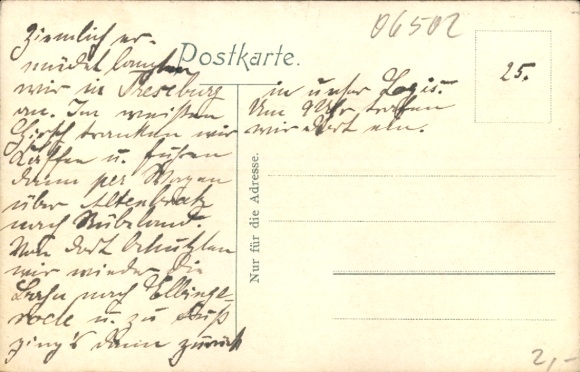 06502
Postkarte.
25.
Ziemlich er-
müdet langten
wir in Treseburg
an. Im weißen
Hirsch tranken wir
Kaffee u. fuhren
dann per Wagen
über Altenbrak
nach Rübeland.
Von dort benutzten
wir wieder die
Bahn nach Elbinge-
rode u. zu Fuß
ging's dann zurück
in unser Logis.
Um 9 Uhr trafen
wir dort ein.
Nur für die Adresse.
2,-